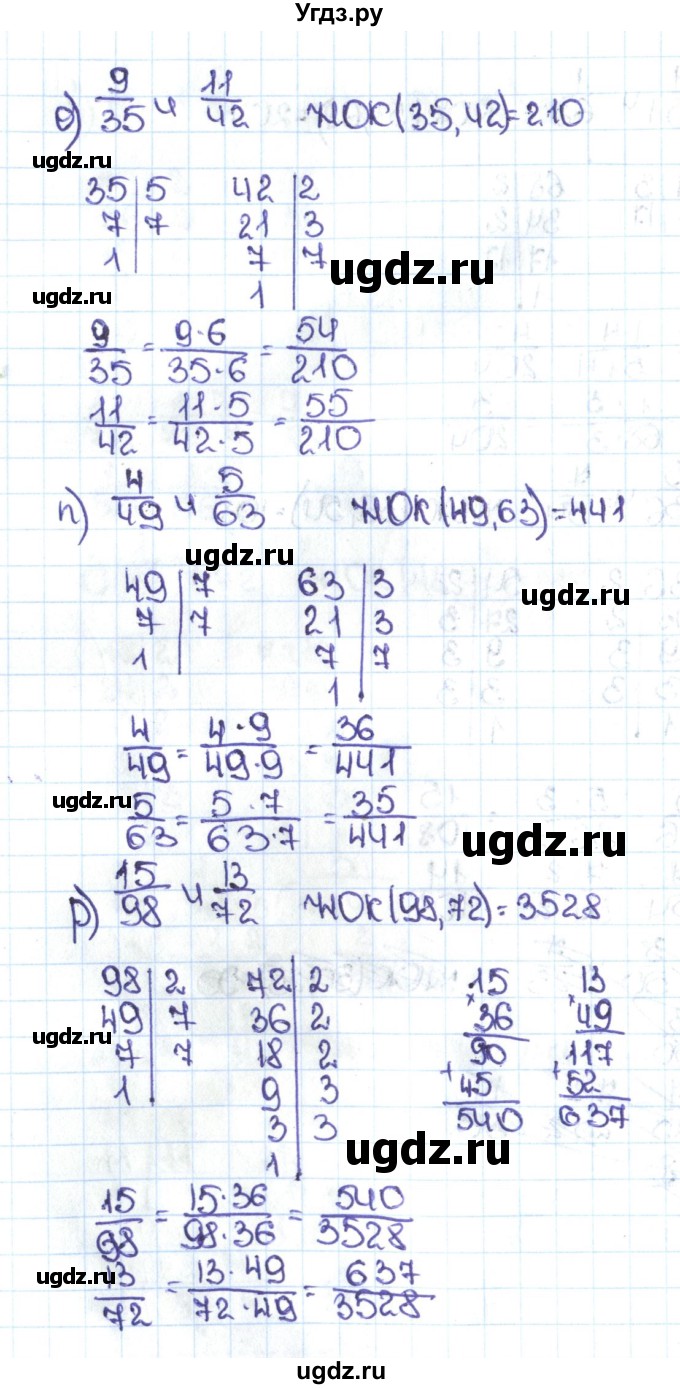 Угдз.ру
о) 9/35 и 11/42 НОК(35,42)=210
ugdz.ru
35|5 42|2
7|7 21|3
1 7|7
ugdz.ru
1
ugdz.ru
9/35 = 9·6/35·6 = 54/210
11/42 = 11·5/42·5 = 55/210
п) 4/49 и 5/63 НОК(49,63)=441
ugdz.ru
49|7 63|3
ugdz.ru
7|7 21|3
1 7|7
1
4/49 = 4·9/49·9 = 36/441
ugdz.ru
5/63 = 5·7/63·7 = 35/441
ugdz.ru
р) 15/98 и 13/72 НОК(98,72)=3528
98|2 72|2 15 13
49|7 36|2 × 36 × 49
ugdz.ru
7|7 18|2 90 117
1 9|3 + 45 + 52
ugdz.ru
3|3 540 637
1
ugdz.ru
15/98 = 15·36/98·36 = 540/3528
ugdz.ru
13/72 = 13·49/72·49 = 637/3528
ugdz.ru